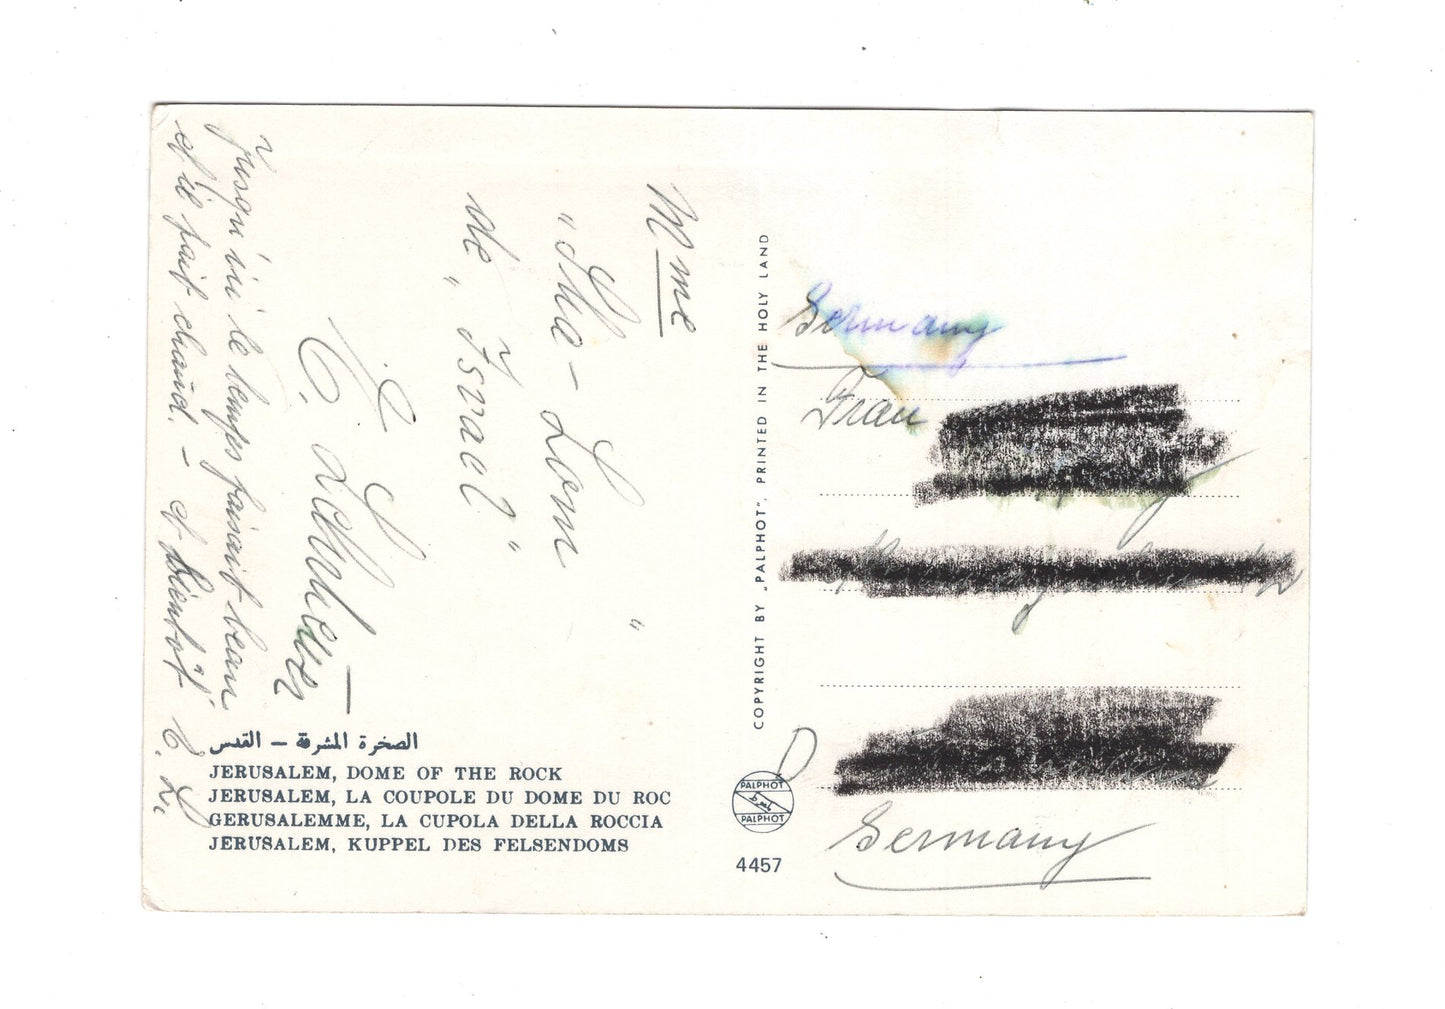 Mme
"Sha-Lom"
de "Israel"
E.
C.
Jusqu'ici le temps faisait beau
et il fait chaud. - et Bientôt C. L.
الصخرة المشرفة – القدس
JERUSALEM, DOME OF THE ROCK
JERUSALEM, LA COUPOLE DU DOME DU ROC
GERUSALEMME, LA CUPOLA DELLA ROCCIA
JERUSALEM, KUPPEL DES FELSENDOMS
COPYRIGHT BY „PALPHOT", PRINTED IN THE HOLY LAND
PALPHOT
PALPHOT
4457
Germany
Frau
D
Germany